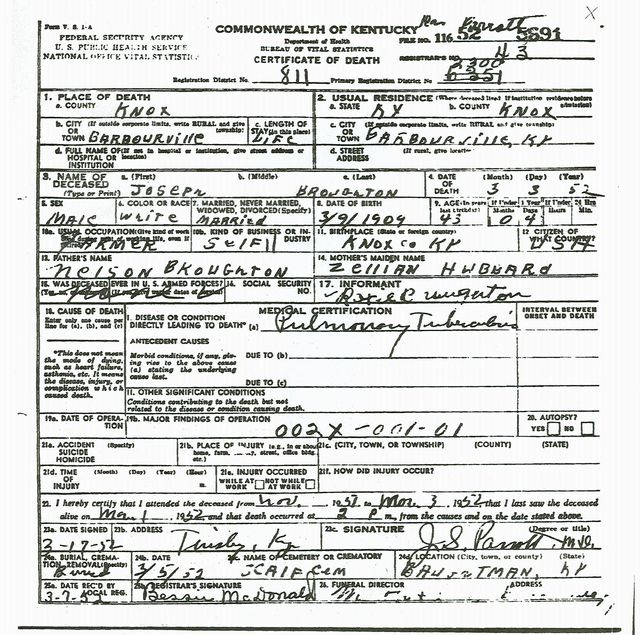 X
Form V. S. 1-A
FEDERAL SECURITY AGENCY
U. S. PUBLIC HEALTH SERVICE
NATIONAL OFFICE VITAL STATISTICS
COMMONWEALTH OF KENTUCKY
Department of Health
BUREAU OF VITAL STATISTICS
CERTIFICATE OF DEATH
Parrott
FILE NO. 116 52 5591
REGISTRAR'S NO. 43
Registration District No. 811 Primary Registration District No. 2300
1. PLACE OF DEATH
a. COUNTY KNOX
2. USUAL RESIDENCE (Where deceased lived. If institution: residence before admission)
a. STATE KY b. COUNTY KNOX
b. CITY (If outside corporate limits, write RURAL and give township)
OR TOWN BARBOURVILLE
c. LENGTH OF STAY (in this place) LIFE
c. CITY (If outside corporate limits, write RURAL and give township)
OR TOWN BARBOURVILLE, KY
d. FULL NAME OF (If not in hospital or institution, give street address or location)
HOSPITAL OR INSTITUTION
d. STREET ADDRESS (If rural, give location)
3. NAME OF DECEASED (Type or Print)
a. (First) JOSEPH b. (Middle) c. (Last) BROUGHTON
4. DATE OF DEATH (Month) (Day) (Year) 3 3 52
5. SEX MALE
6. COLOR OR RACE WRITE
7. MARRIED, NEVER MARRIED, WIDOWED, DIVORCED (Specify) MARRIED
8. DATE OF BIRTH 3/9/1909
9. AGE (In years last birthday) 43 If Under 1 Year Months Days If Under 24 Hrs. Hours Min.
10a. USUAL OCCUPATION (Give kind of work done during most of working life, even if retired) FARMER
10b. KIND OF BUSINESS OR INDUSTRY SELF
11. BIRTHPLACE (State or foreign country) KNOX CO KY
12. CITIZEN OF WHAT COUNTRY? USA
13. FATHER'S NAME NELSON BROUGHTON
14. MOTHER'S MAIDEN NAME ZELLIAN HUBBARD
15. WAS DECEASED EVER IN U. S. ARMED FORCES?
16. SOCIAL SECURITY NO.
17. INFORMANT
18. CAUSE OF DEATH
Enter only one cause per line for (a), (b), and (c)
MEDICAL CERTIFICATION
INTERVAL BETWEEN ONSET AND DEATH
I. DISEASE OR CONDITION DIRECTLY LEADING TO DEATH* (a) Pulmonary Tuberculosis
*This does not mean the mode of dying, such as heart failure, asthenia, etc. It means the disease, injury, or complication which caused death.
ANTECEDENT CAUSES
Morbid conditions, if any, giving rise to the above cause (a) stating the underlying cause last.
DUE TO (b)
DUE TO (c)
II. OTHER SIGNIFICANT CONDITIONS
Conditions contributing to the death but not related to the disease or condition causing death.
19a. DATE OF OPERATION
19b. MAJOR FINDINGS OF OPERATION
002X-001-01
20. AUTOPSY? YES NO
21a. ACCIDENT SUICIDE HOMICIDE (Specify)
21b. PLACE OF INJURY (e.g., in or about home, farm, factory, street, office bldg. etc.)
21c. (CITY, TOWN, OR TOWNSHIP) (COUNTY) (STATE)
21d. TIME OF INJURY (Month) (Day) (Year) (Hour) m.
21e. INJURY OCCURRED WHILE AT WORK NOT WHILE AT WORK
21f. HOW DID INJURY OCCUR?
22. I hereby certify that I attended the deceased from Nov. 1951 to Mar 3 1952 that I last saw the deceased
alive on Mar 1 1952 and that death occurred at 2 P m., from the causes and on the date stated above.
23a. DATE SIGNED 3-17-52
23b. ADDRESS Tinsley, Ky
23c. SIGNATURE (Degree or title) J. S. Parrott M.D.
24a. BURIAL, CREMATION, REMOVAL (Specify) Burial
24b. DATE 3/5/52
24c. NAME OF CEMETERY OR CREMATORY SCALF CEM
24d. LOCATION (City, town, or county) (State) KY
25a. DATE REC'D BY LOCAL REG. 3-7-52
25b. REGISTRAR'S SIGNATURE Bessie McDonald
25. FUNERAL DIRECTOR ADDRESS